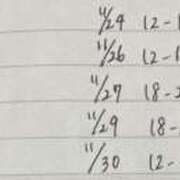 11/24 12-1
11/26 12-1
11/27 18-2
11/29 18-
11/30 12-